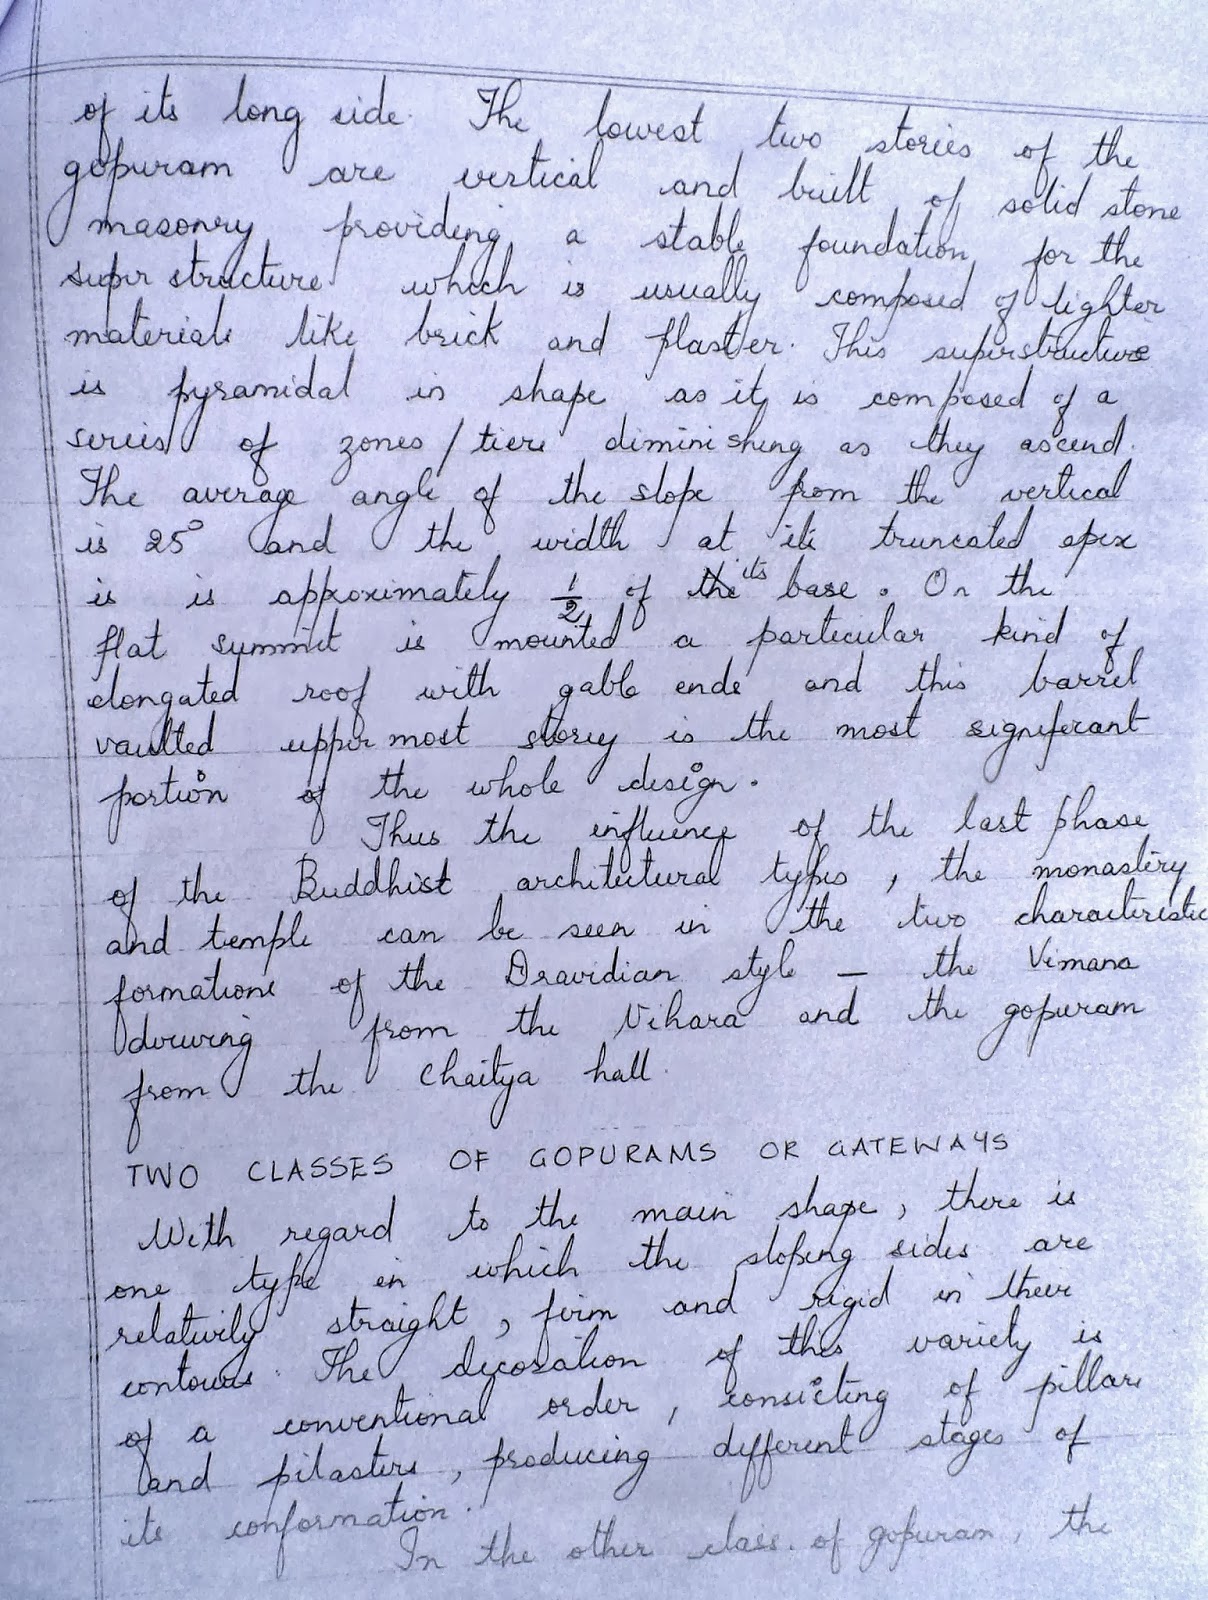 of its long side. The lowest two stories of the
gopuram are vertical and built of solid stone
masonry providing a stable foundation for the
super structure which is usually composed of lighter
materials like brick and plaster. This superstructure
is pyramidal in shape as it is composed of a
series of zones / tiers diminishing as they ascend.
The average angle of the slope from the vertical
is 25° and the width at its truncated apex
is is approximately 1/2 of the its base. On the
flat summit is mounted a particular kind of
elongated roof with gable ends and this barrel
vaulted upper most storey is the most significant
portion of the whole design.
Thus the influence of the last phase
of the Buddhist architectural types, the monastery
and temple can be seen in the two characteristic
formations of the Dravidian style — the Vimana
deriving from the Vihara and the gopuram
from the Chaitya hall.
TWO CLASSES OF GOPURAMS OR GATEWAYS
With regard to the main shape, there is
one type in which the sloping sides are
relatively straight, firm and rigid in their
contours. The decoration of this variety is
of a conventional order, consisting of pillars
and pilasters, producing different stages of
its conformation.
In the other class of gopuram, the